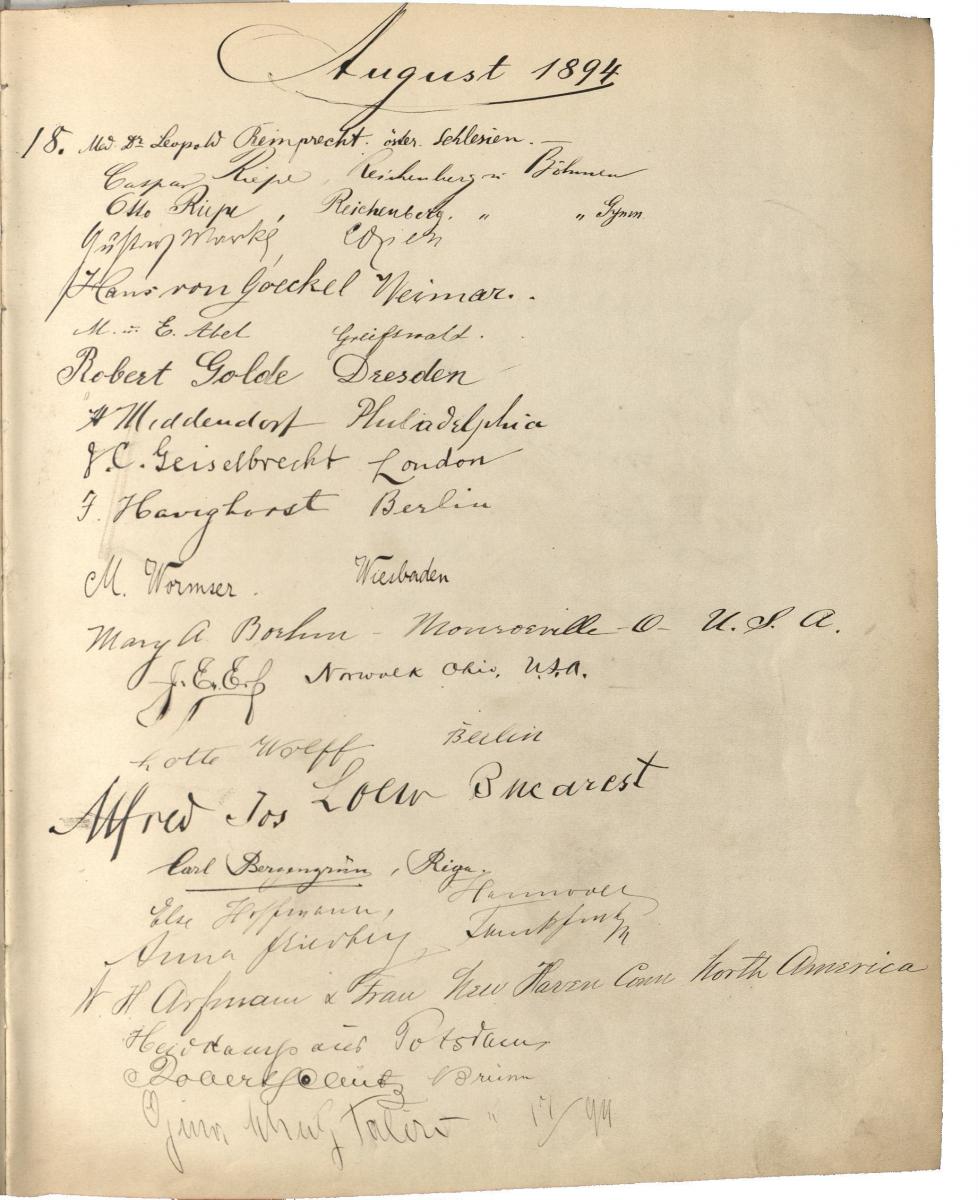 August 1894
18. Med. Dr Leopold Reimprecht. öster. Schlesien. —
Caspar Riepe, Reichenberg in Böhmen
Otto Riepe, Reichenberg. " " Gymn
Gustav Wien
Hans von Goeckel Weimar.
M. u. E. Abel Greifswald.
Robert Golde Dresden
H Middendorf Philadelphia
J. C. Geiselbrecht London
F. Havighorst Berlin
M. Wormser. Wiesbaden
Mary A. Boehm - Monroeville - O - U. S. A.
J. E. Erf Norwalk Ohio, U.S.A.
Lotte Wolff Berlin
Alfred Jos Loew Bucarest
Carl Bergengrün, Riga.
Else Hoffmann, Hannover
Anna Friedberg, Frankfurt
W H & Frau New Haven Conn North America
aus Potsdam
Robert Brünn
94